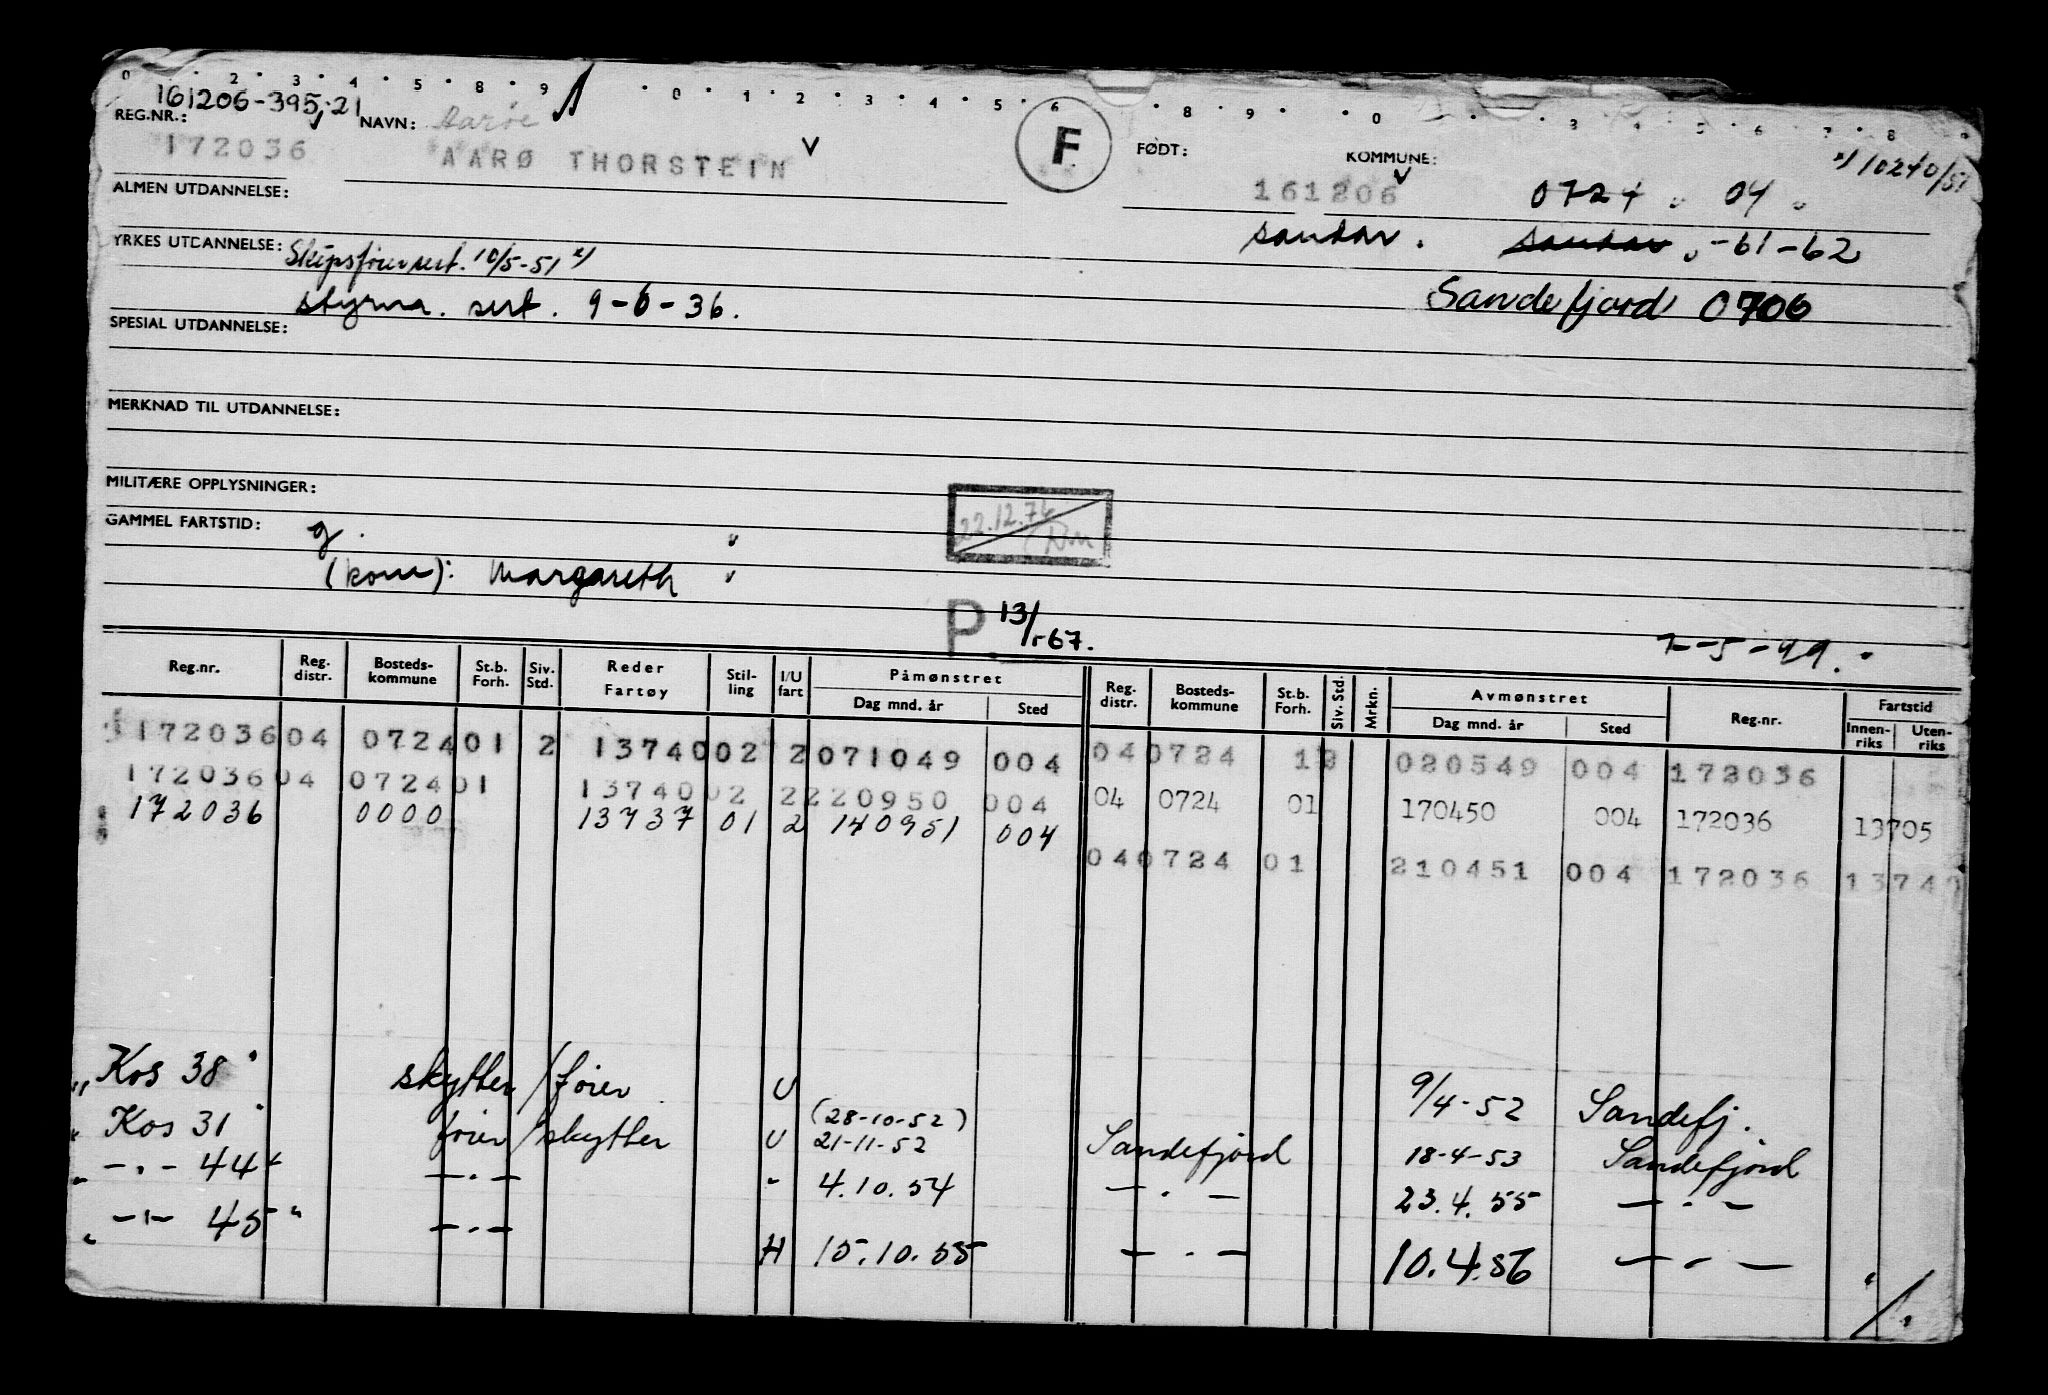 0 · 2 · 3 · 4 · 5 · 8 · 9 · 0 · 1 2 · 3 · 4 · 5 · 6 · 8 · 9 · 0 · 3 4 5 6 7 8
REG.NR.: 161206-395,21 NAVN: Aarøe F FØDT: KOMMUNE: x) 10240/51
172036 AARØ THORSTEIN 161206 0724 04
ALMEN UTDANNELSE:
Sandar. Sandar -61-62
YRKES UTDANNELSE: Skipsførersert. 10/5-51 x)
styrm. sert. 9-6-36. Sandefjord 0706
SPESIAL UTDANNELSE:
MERKNAD TIL UTDANNELSE:
MILITÆRE OPPLYSNINGER:
22.12.76
GAMMEL FARTSTID: g.
(kone): Margareth
P 13/-67.
2-5-49.
Reg.nr. Reg. distr. Bosteds-kommune St.b. Forh. Siv. Std. Reder Fartøy Stil-ling I/U fart Påmønstret Dag mnd. år Sted Reg. distr. Bosteds-kommune St.b. Forh. Siv. Std. Mrkn. Avmønstret Dag mnd. år Sted Reg.nr. Fartstid Innen-riks Uten-riks
172036 04 0724 01 2 13740 02 2 071049 004 04 0724 1 020549 004 172036
172036 04 0724 01 13740 02 2 220950 004 04 0724 01 170450 004 172036 13705
172036 0000 13737 01 2 140951 004
04 0724 01 210451 004 172036 1374
" Kos 38 " skytter/fører U 9/4-52 Sandefj.
" Kos 31 " fører/skytter U (28-10-52) 21-11-52 Sandefjord 18-4-53 Sandefjord
" -"- 44 " -"- " 4.10.54 -"- 23.4.55 -"-
" -"- 45 " -"- H 15.10.55 -"- 10.4.56 -"-